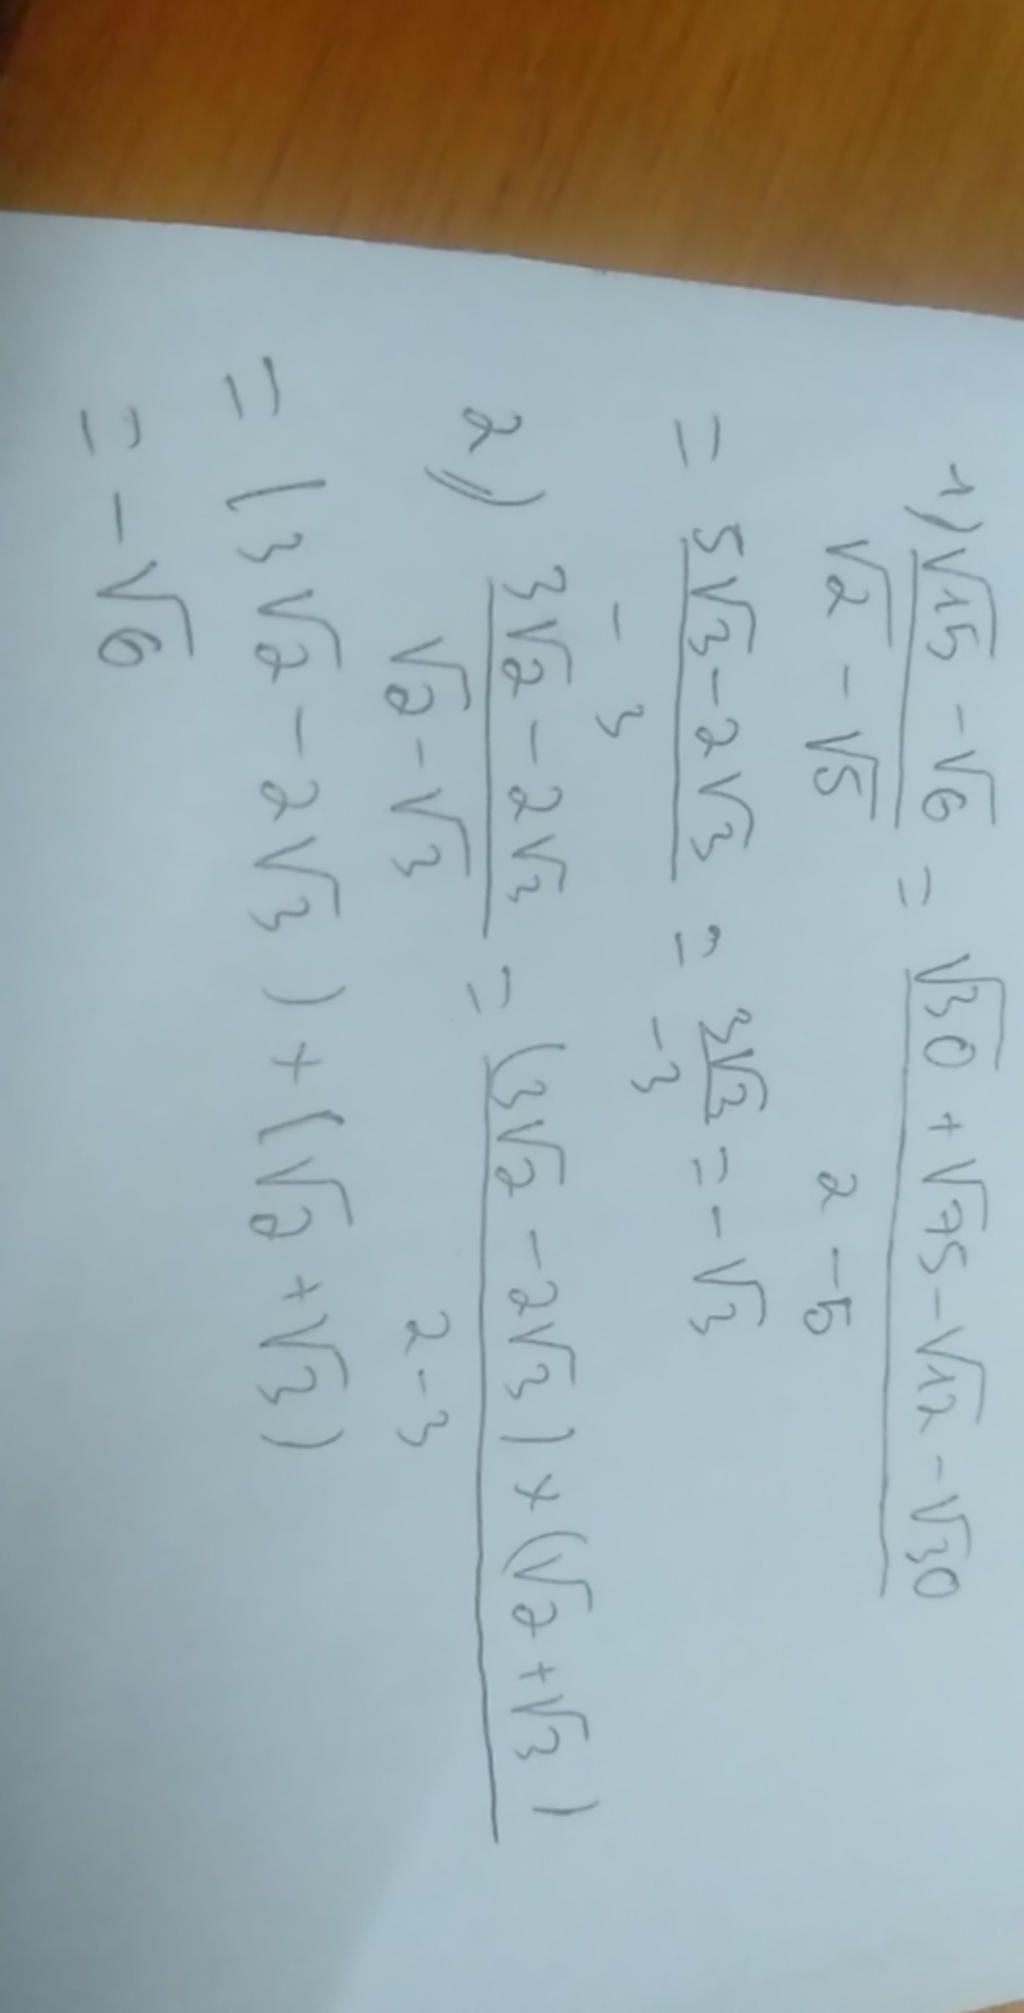 1) √15 - √6 = √30 + √75 - √12 - √30
√2 - √5 2 - 5
= 5√3 - 2√3 = 3√3 = - √3
- 3 -3
2) 3√2 - 2√3 = (3√2 - 2√3) × (√2 + √3)
√2 - √3 2 - 3
= (3√2 - 2√3) + (√2 + √3)
= - √6